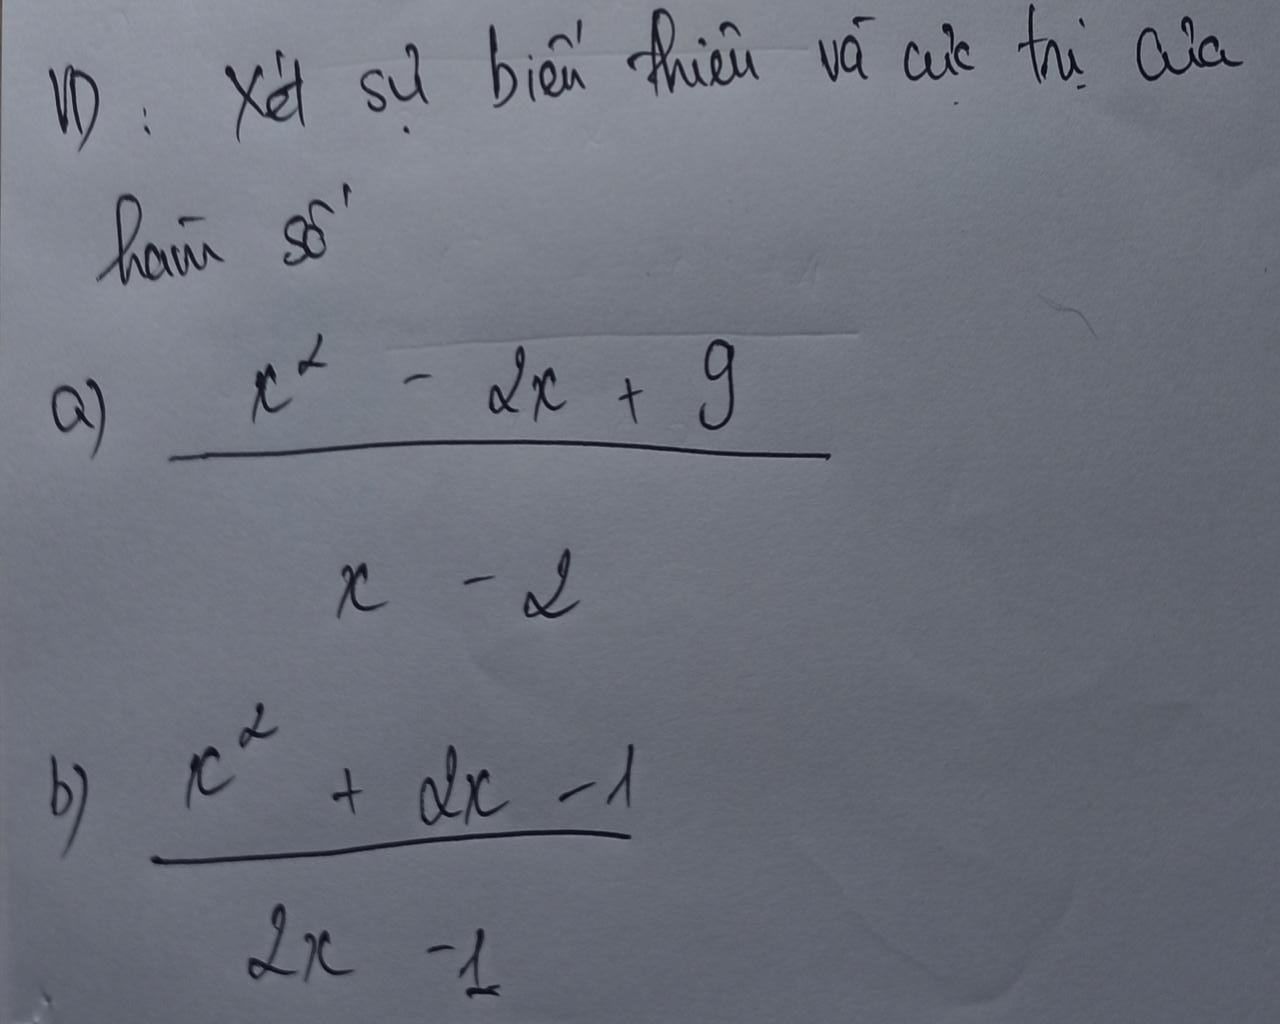 VD: Xét sự biến thiên và cực trị của
hàm số
a) x² - 2x + 9
x - 2
b) x² + 2x - 1
2x - 1